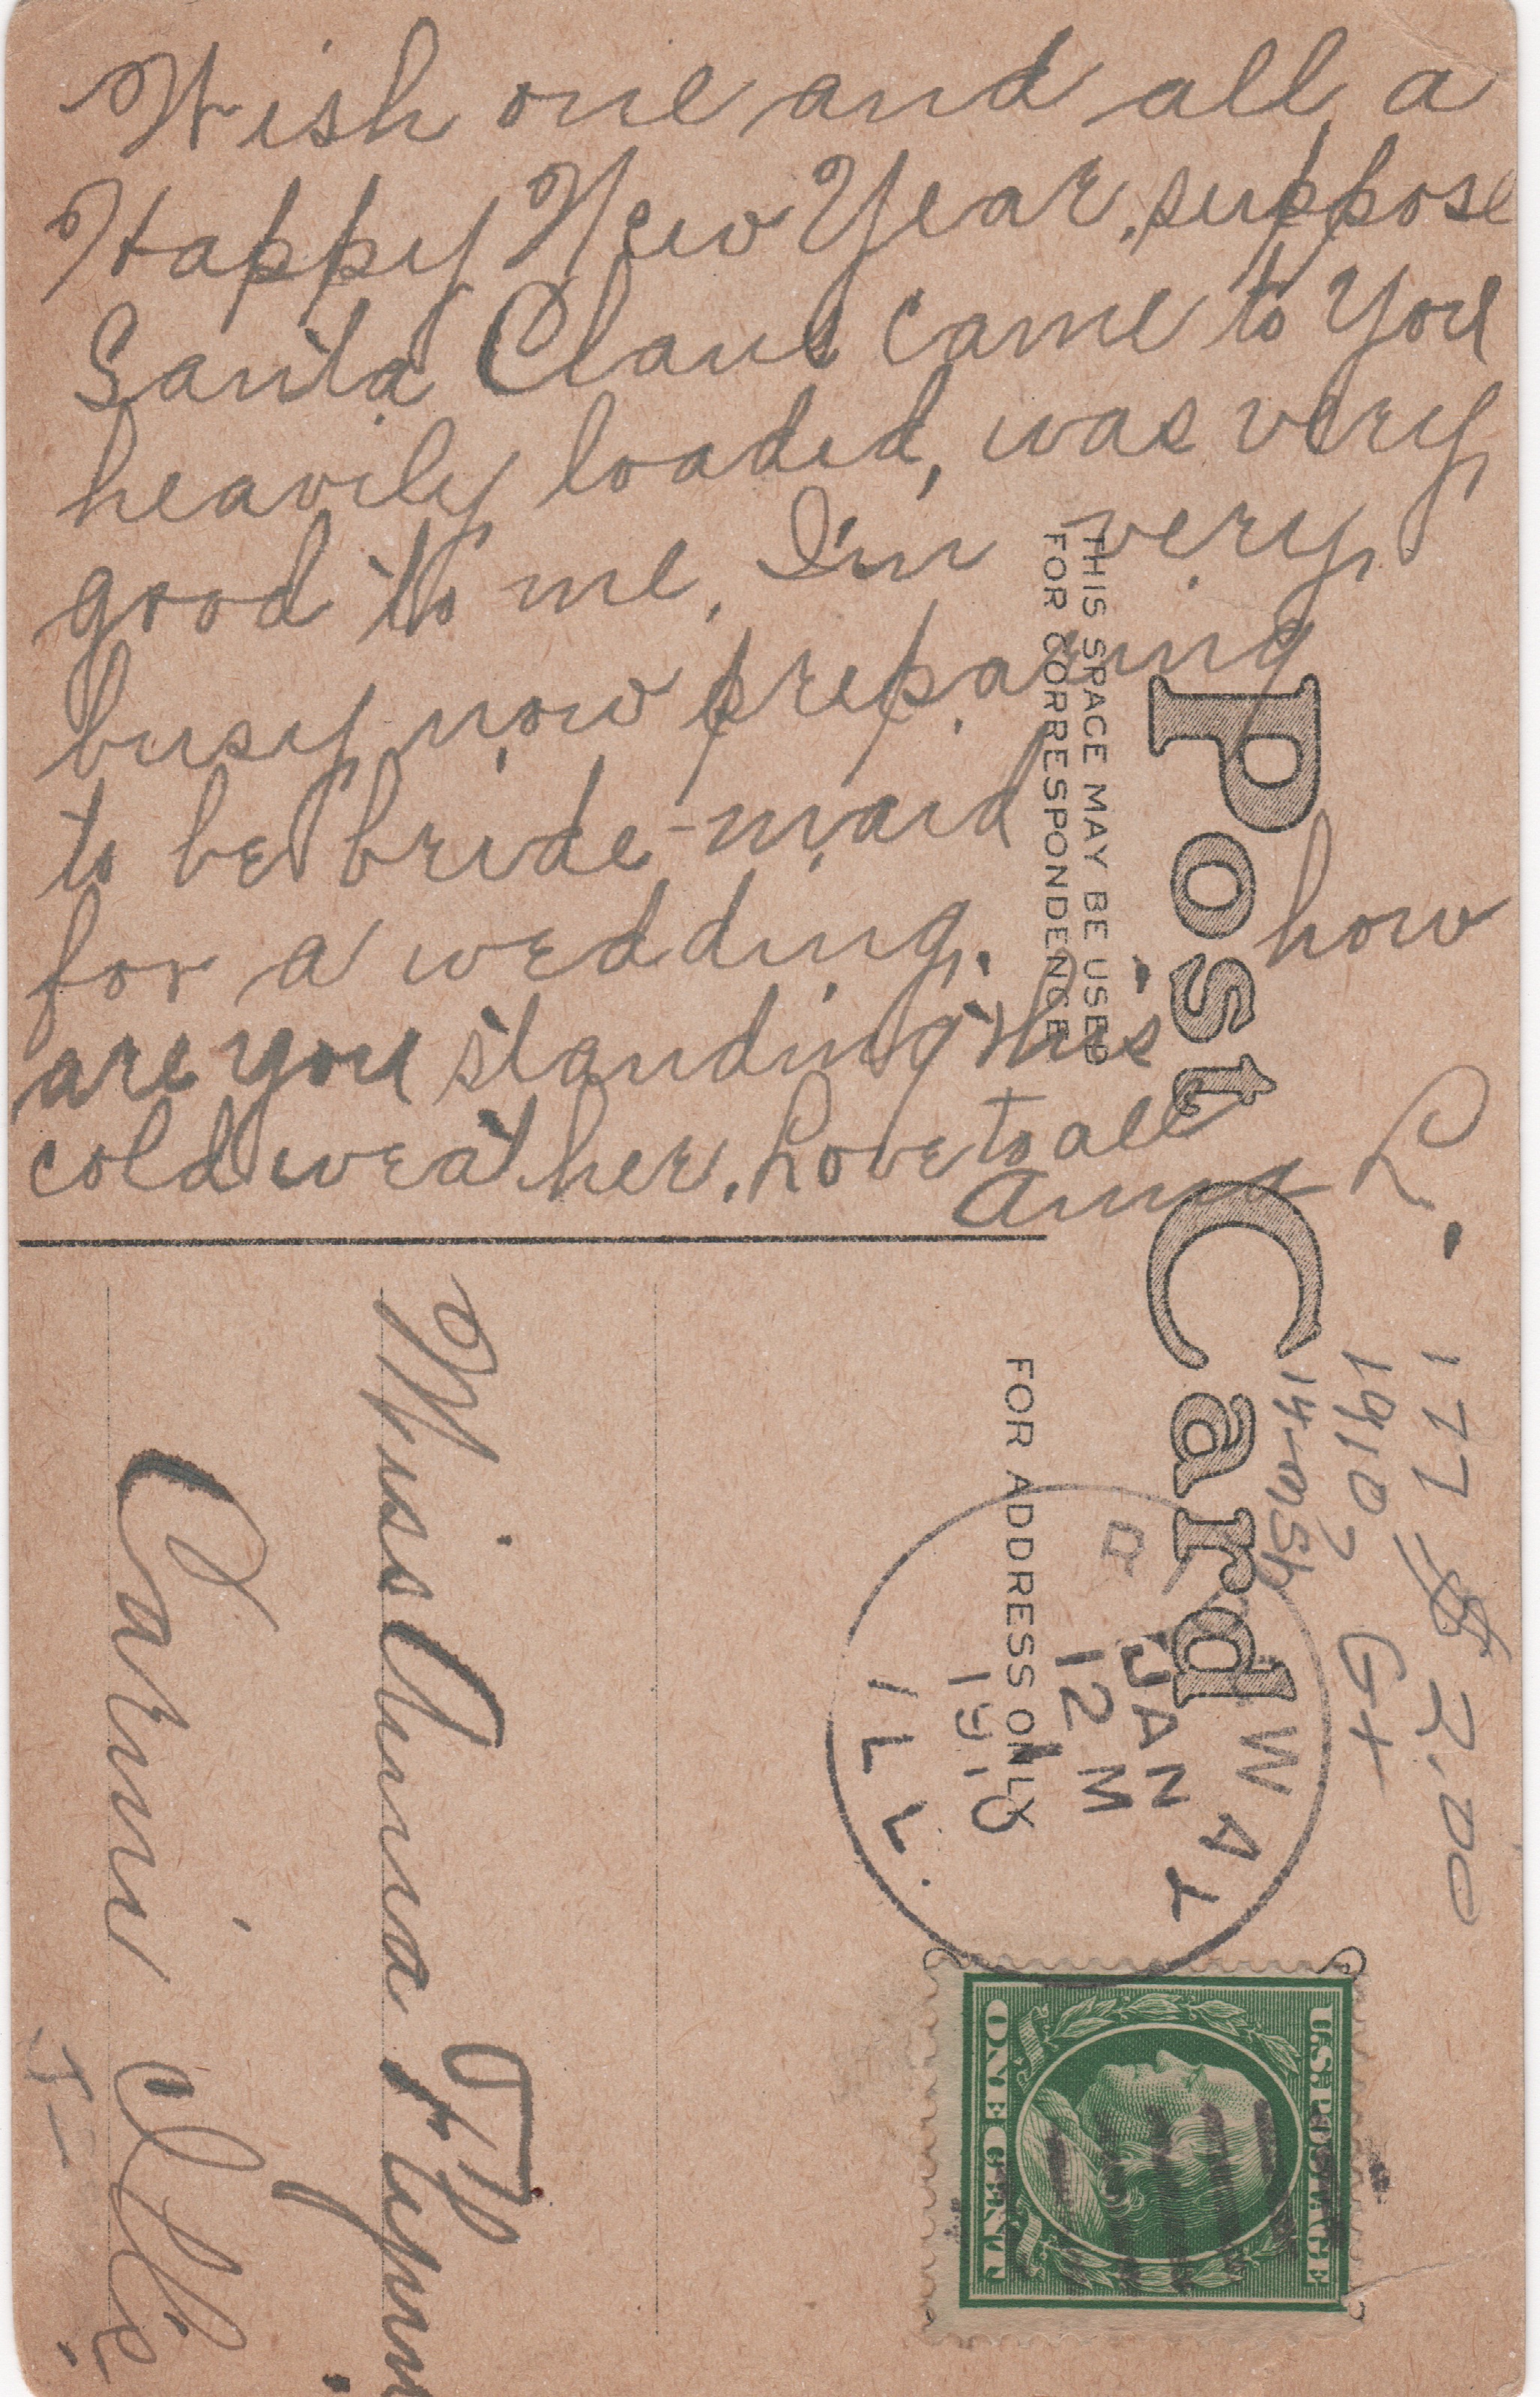 Wish one and all a
Happy New Year, suppose
Santa Claus came to you
heavily loaded, was very
good to me. I'm very
busy now preparing
to be bride-maid
for a wedding. how
are you standing this
cold weather. Love to all
Anna L.
Post Card
THIS SPACE MAY BE USED
FOR CORRESPONDENCE
FOR ADDRESS ONLY
177 $ 2.00
1910? G+
JAN
12 M
1910
ILL.
U.S. POSTAGE
ONE CENT
Miss Anna Flynn
Carmi Ills